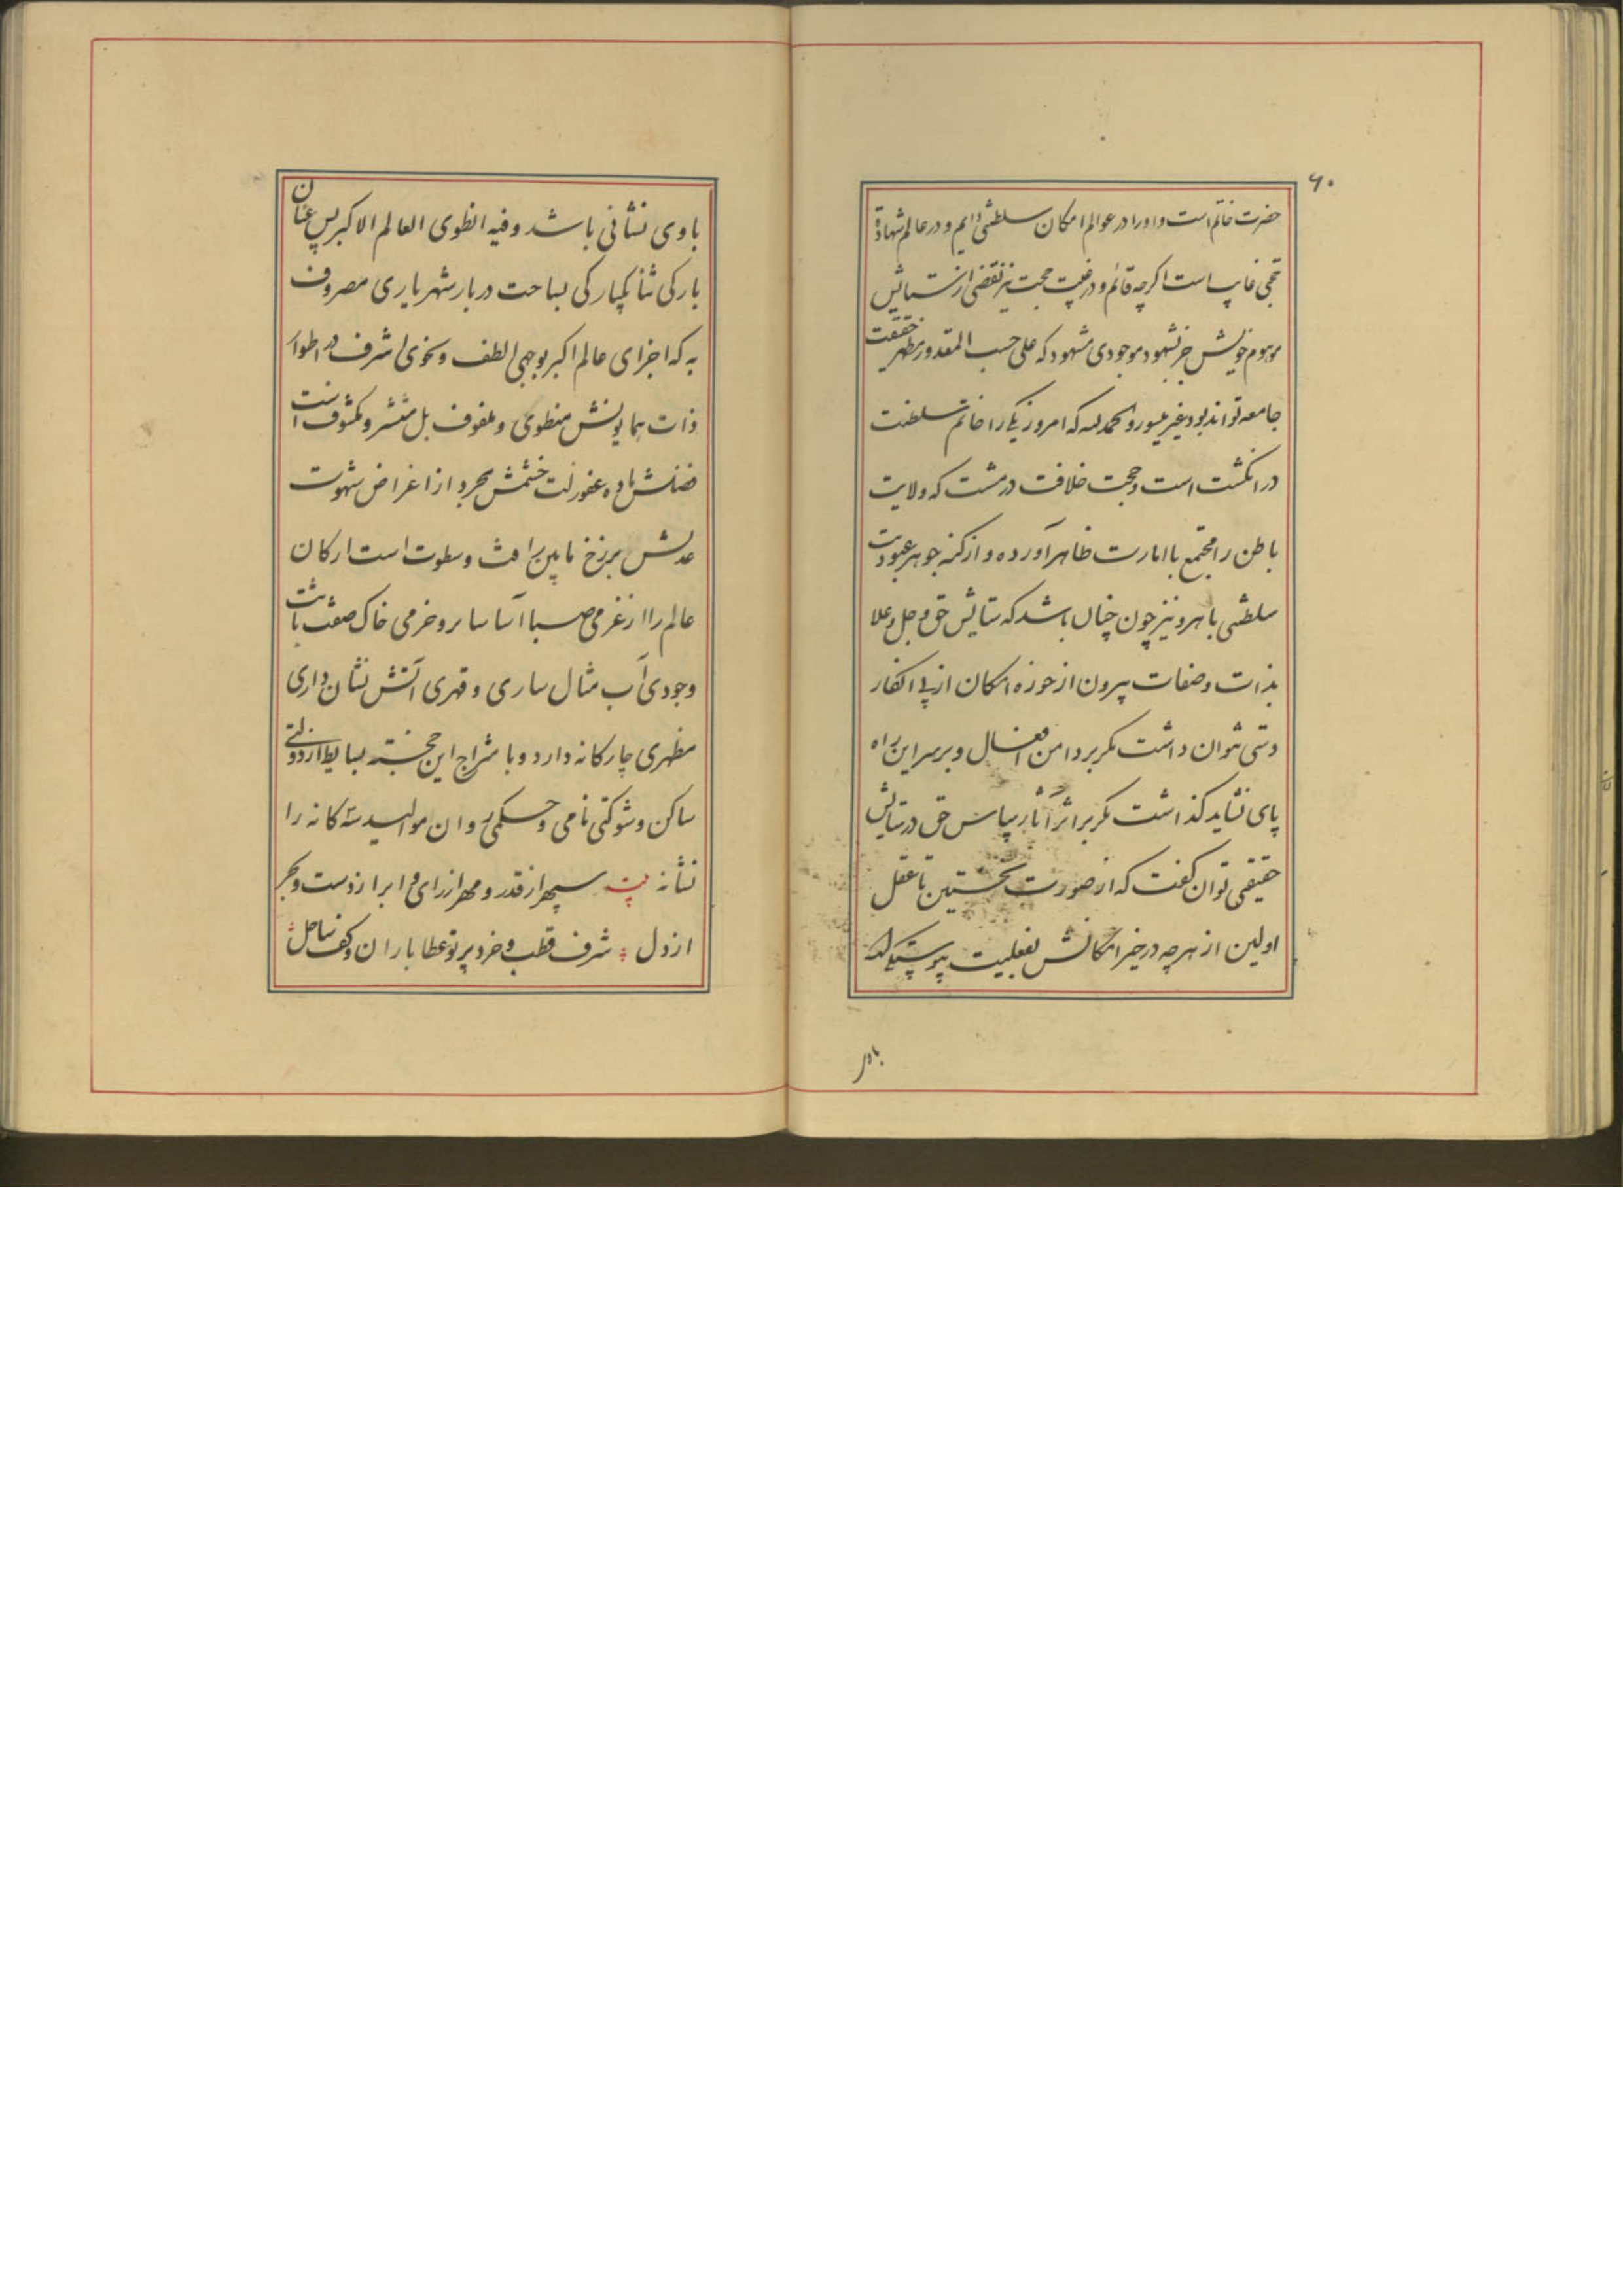 ۶۰
حضرت خاتم است و او را در عوالم امکان سلطنتی دایم و در عالم شهادة
حجی غایب است اکرچه قائم و در غیبت حجت نیز نقضی از
موهوم خویش جز بشهود موجودی مشهود که علی حسب المقدور مظهر حقیقت
جامعه تواند بود غیر میسور و الحمد لله که امروز یکی را خاتم سلطنت
در انکشت است و حجت خلافت در مشت که ولایت
باطن را مجتمع با امارت ظاهر آورده و از کنه جوهر عبودیت
سلطنتی باهر و نیز چون چنان باشد که ستایش حق و جل و علا
بذات و صفات بیرون از حوزه امکان از پی افکار
دستی نتوان داشت مکر بر دامن افعال و بر سر این راه
پای نشاید کذاشت مکر بر اثر آثار سپاس حق در ستایش
حقیقی توان کفت که از صورت نخستین تا عقل
اولین از هرچه در حیز امکانش بفعلیت پیوسته
باوی نشانی باشد و فیه انطوی العالم الاکبر پس عنان
بارکی ثنا یکبارکی بساحت دربار شهریاری مصروف
به که اجزای عالم اکبر بوجهی الطف و نحوی اشرف در اطوار
ذات همایونش منطوی و ملفوف بل منتشر و مکشوف است
فضلش ماده عفو زلت خشمش مجرد از اغراض شهوت
عدلش برزخ مابین رافت و سطوت است ارکان
عالم را از عزمی صبا آسا سایر و حزمی خاک صفت ثابت
وجودی آب مثال ساری و قهری آتش نشان داری
مظهری چارکانه دارد و با متزاج این خجسته بسایط از دولتی
ساکن و شوکتی نامی و حکمی روان موالید سه کانه را
نشانه بیت سپهر از قدر و مهر از رای و ابر از دست و بحر
از دل شرف قطب و خرد پرتو عطا باران و کف ساحل